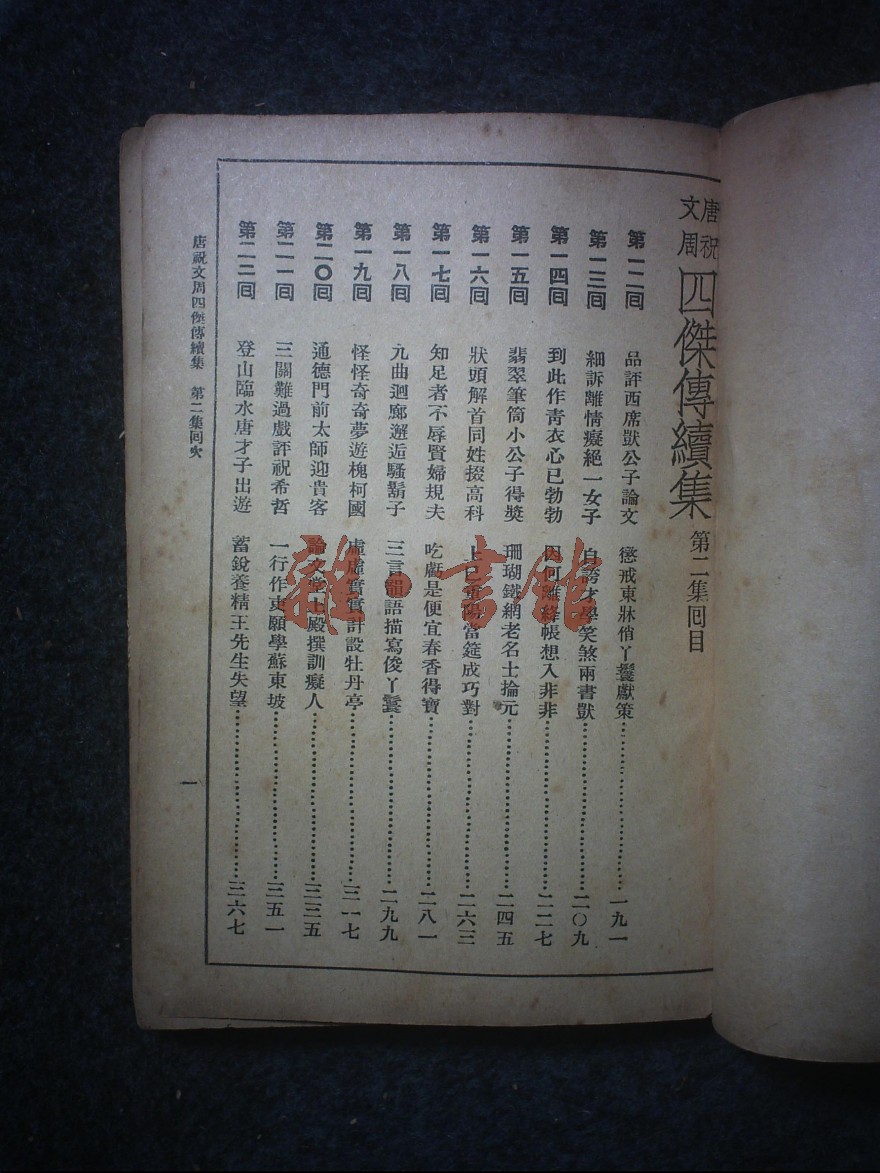 唐祝文周四傑傳續集 第二集囘目
第一二囘 品評西席獃公子論文 懲戒東牀俏丫鬟獻策 一九一
第一三囘 細訴離情癡絕一女子 自誇才學笑煞兩書獃 二〇九
第一四囘 到此作靑衣心已勃勃 因何離絳帳想入非非 二二七
第一五囘 翡翠筆筒小公子得獎 珊瑚鐵網老名士掄元 二四五
第一六囘 狀頭解首同姓掇高科 上巳重陽當筵成巧對 二六三
第一七囘 知足者不辱賢婦規夫 吃虧是便宜春香得寶 二八一
第一八囘 九曲迴廊邂逅騷鬍子 三言韻語描寫俊丫鬟 二九九
第一九囘 怪怪奇奇夢遊槐柯國 虛虛實實計設牡丹亭 三一七
第二〇囘 通德門前太師迎貴客 論文堂上殿撰訓癡人 三三五
第二一囘 三關難過戲評祝希哲 一行作吏願學蘇東坡 三五一
第二二囘 登山臨水唐才子出遊 蓄銳養精王先生失望 三六七
唐祝文周四傑傳續集 第二集囘次
一
雜·書館